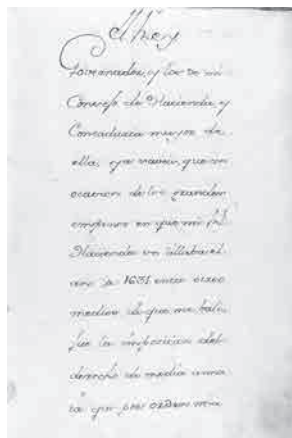 El Rey
Governador, y los de mi
Consejo de Hacienda, y
Contaduria mayor de
ella, ya saveis, que en
ocasion de los grandes
empeños en que mi Rl
Hacienda se allaba el
año de 1631 entre otros
medios de que me vali
fue la imposicion del
derecho de media anna
ta que por orden mia